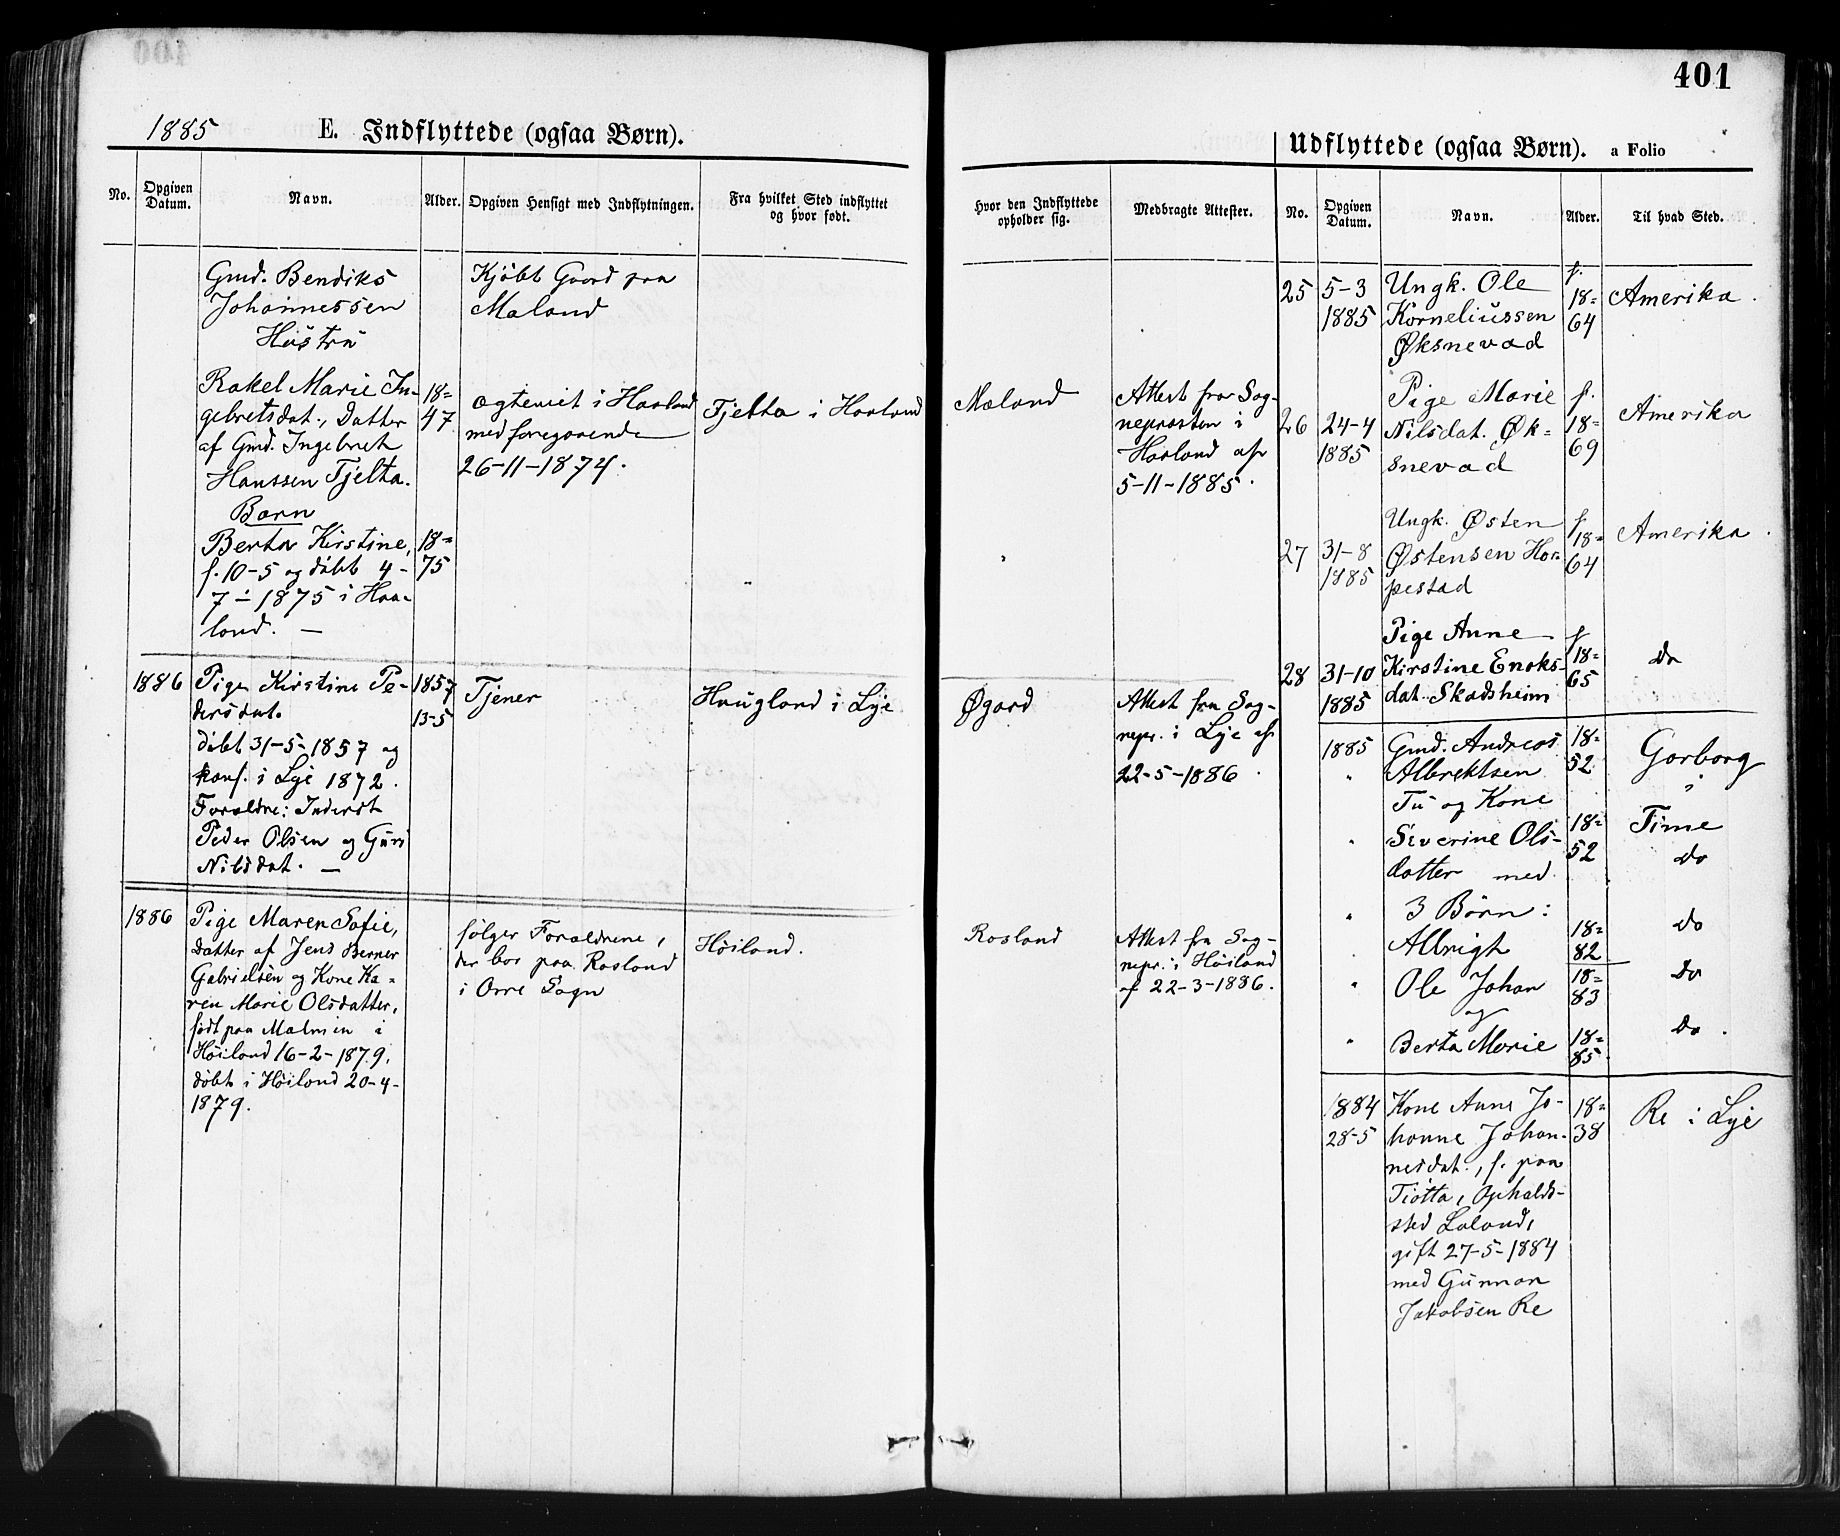 401
1885 E. Indflyttede (ogsaa Børn).
No.
Opgiven Datum.
Navn.
Alder.
Opgiven Hensigt med Indflytningen.
Fra hvilket Sted indflyttet og hvor født.
Hvor den Indflyttede opholder sig.
Medbragte Attester.
Gmd. Bendiks
Johannessen
Hustru
Kjøbt Gaard paa
Maland
Rakel Marie In-
gebretsdat., Datter
af Gmd. Ingebret
Hanssen Tjelta.
18=
47
ægteviet i Haaland
med foregaaende
26-11-1874.
Tjelta i Haaland
Mæland
Attest fra Sog-
neprosten i
Haaland af
5-11-1885.
Børn
Berta Kirstine,
f. 10-5 og døbt 4-
7-1875 i Haa-
land. —
18=
75
"
"
1886
Pige Kirstine Pe-
dersdat.
døbt 31-5-1857 og
konf. i Lye 1872.
Forældre: Inderst
Peder Olsen og Guri
Nilsdat. —
1857
13-5
Tjener
Haugland i Lye
Øgard
Attest fra Sog-
nepr. i Lye af
22-5-1886.
1886
Pige Maren Sofie,
Datter af Jens Berner
Gabrielsen og Kone Ka-
ren Marie Olsdatter,
født paa Malmin i
Høiland 16-2-1879,
døbt i Høiland 20-4-
1879.
følger Forældrene,
der bor paa Rosland
i Orre Sogn
Høiland.
Rosland
Attest fra Sog-
nepr. i Høiland
af 22-3-1886.
Udflyttede (ogsaa Børn). a Folio
No.
Opgiven Datum.
Navn.
Alder.
Til hvad Sted.
25
5-3
1885
Ungk. Ole
Korneliussen
Øksnevad
f.
18=
64
Amerika.
26
24-4
1885
Pige Marie
Nilsdat. Øk=
snevad
f.
18=
69
Amerika
27
31-8
1885
Ungk. Østen
Østensen Hor=
pestad
f.
18=
64
Amerika.
28
31-10
1885
Pige Anne
Kirstine Enoks-
dat. Skadsheim
f.
18=
65
Do
1885
Gmd. Andreas
Albrektsen
Tu og Kone
18=
52
Garborg
i
Time
"
Severine Ols-
datter med
18=
52
do
"
3 Børn:
Albrigt
18=
82
do
"
Ole Johan
og
18=
83
do
"
Berta Marie
18=
85
do.
1884
28-5
Kone Anne Jo-
hanne Johan-
nesdat., f. paa
Tjøtta, Opholds-
sted Laland,
gift 27-5-1884
med Gunnar
Jakobsen Re
18=
38
Re i Lye